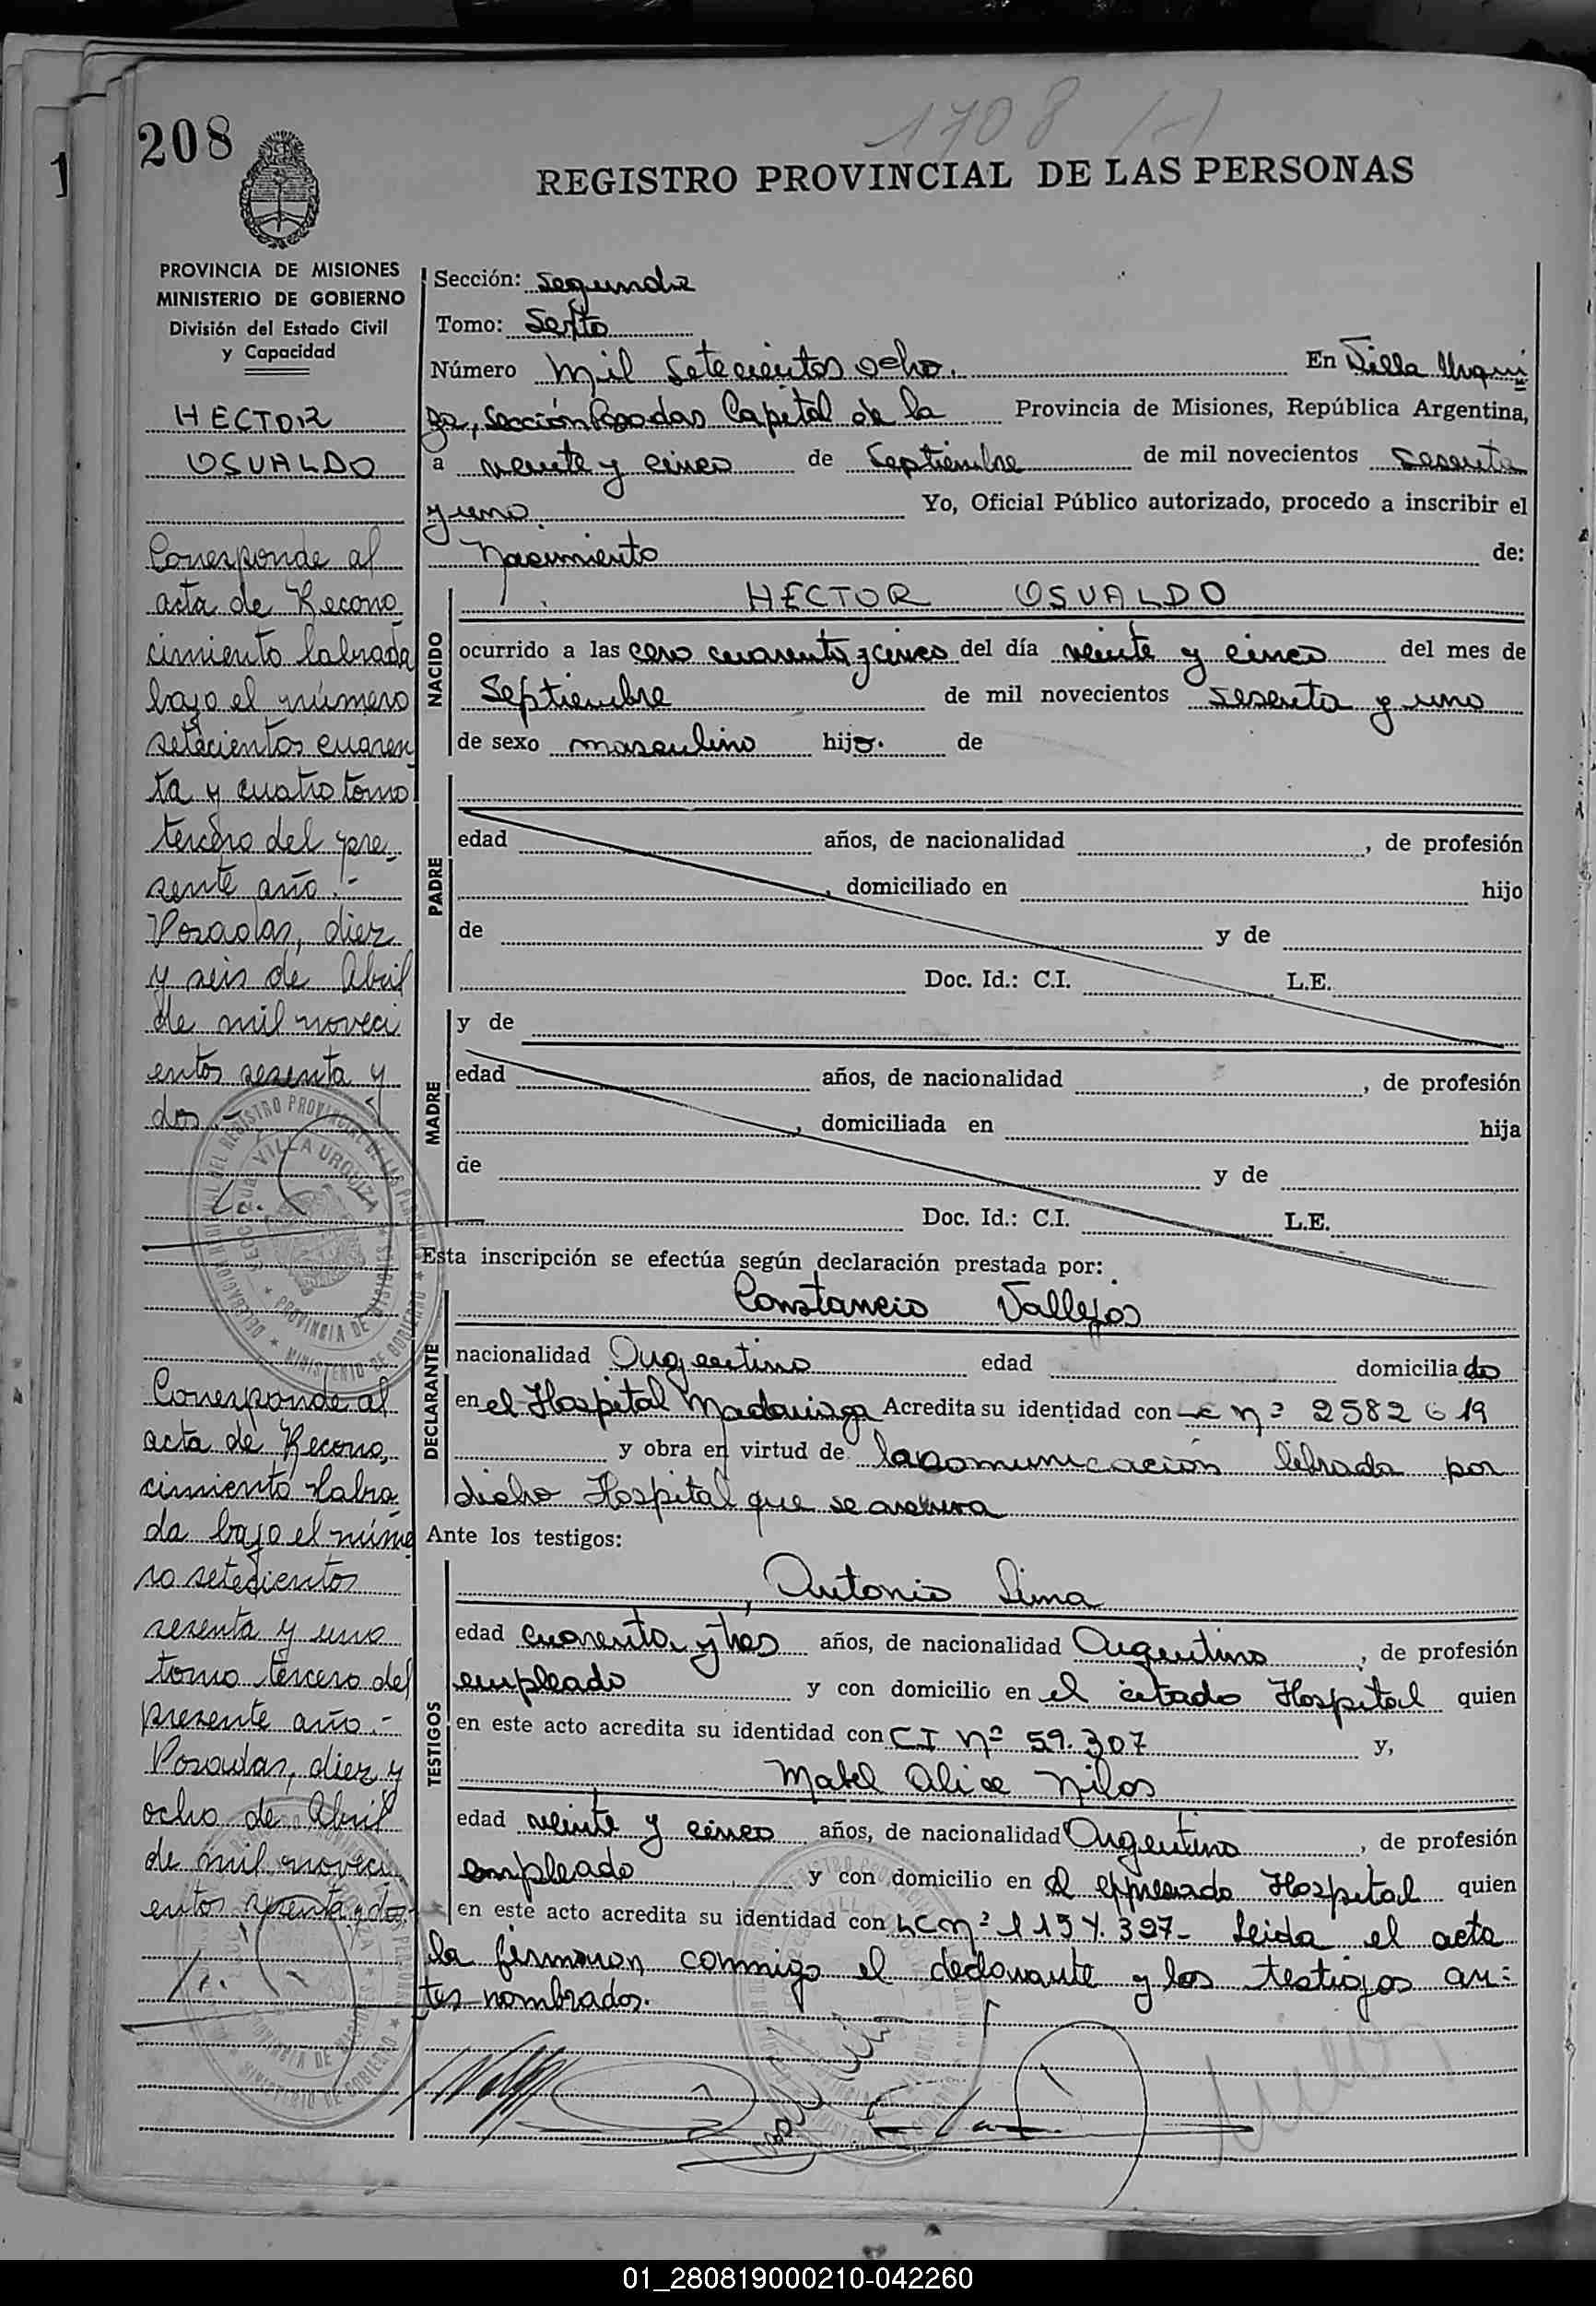 1708 (-)
208
REGISTRO PROVINCIAL DE LAS PERSONAS
PROVINCIA DE MISIONES
MINISTERIO DE GOBIERNO
División del Estado Civil
y Capacidad
HECTOR
OSVALDO
Corresponde al
acta de Recono
cimiento labrada
bajo el número
setecientos cuaren
ta y cuatro tomo
tercero del pre_
sente año.-
Posadas, diez
y seis de Abril
de mil noveci
entos sesenta y
dos.-
Corresponde al
acta de Recono_
cimiento labra
da bajo el núme
ro setecientos
sesenta y uno
tomo tercero del
presente año.-
Posadas, diez y
ocho de Abril
de mil noveci
entos sesenta y dos.
Sección: Segunda
Tomo: Sexto
Número mil setecientos ocho. En Villa Urqui
za, Sección Posadas Capital de la Provincia de Misiones, República Argentina,
a veinte y cinco de Septiembre de mil novecientos sesenta
y uno. Yo, Oficial Público autorizado, procedo a inscribir el
Nacimiento de:
NACIDO
HECTOR OSVALDO
ocurrido a las cero cuarenta y cinco del día veinte y cinco del mes de
Septiembre de mil novecientos sesenta y uno
de sexo masculino hijo. de
PADRE
edad años, de nacionalidad , de profesión
, domiciliado en hijo
de y de
Doc. Id.: C.I. L.E.
MADRE
y de
edad años, de nacionalidad , de profesión
, domiciliada en hija
de y de
Doc. Id.: C.I. L.E.
Esta inscripción se efectúa según declaración prestada por:
DECLARANTE
Constancio Vallejos
nacionalidad Argentino edad domiciliado
en el Hospital Madariaga Acredita su identidad con nº 2582619
y obra en virtud de la comunicación librada por
dicho Hospital que se archiva
Ante los testigos:
TESTIGOS
Antonio Lima
edad cuarenta y tres años, de nacionalidad Argentino, de profesión
empleado y con domicilio en el citado Hospital quien
en este acto acredita su identidad con CI nº 59.307 y,
Mabel Alice
edad veinte y cinco años, de nacionalidad Argentina, de profesión
empleado y con domicilio en el expresado Hospital quien
en este acto acredita su identidad con LC nº Leida el acta
la firmaron conmigo el declarante y los testigos an=
tes nombrados.
01_280819000210-042260